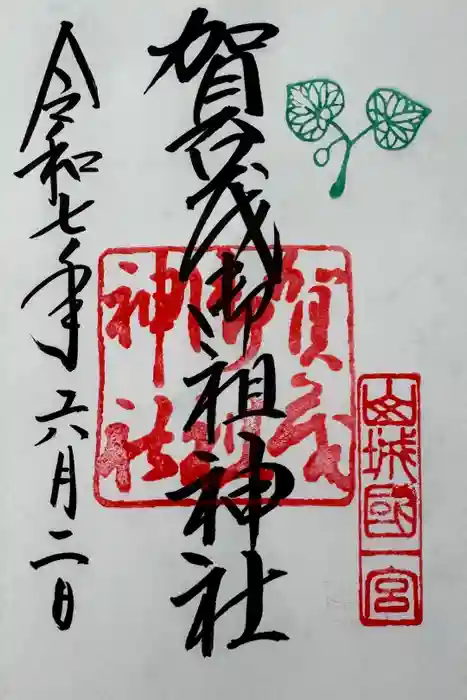 山城國一宮
賀茂御祖神社
賀茂御祖神社
令和七年六月二日